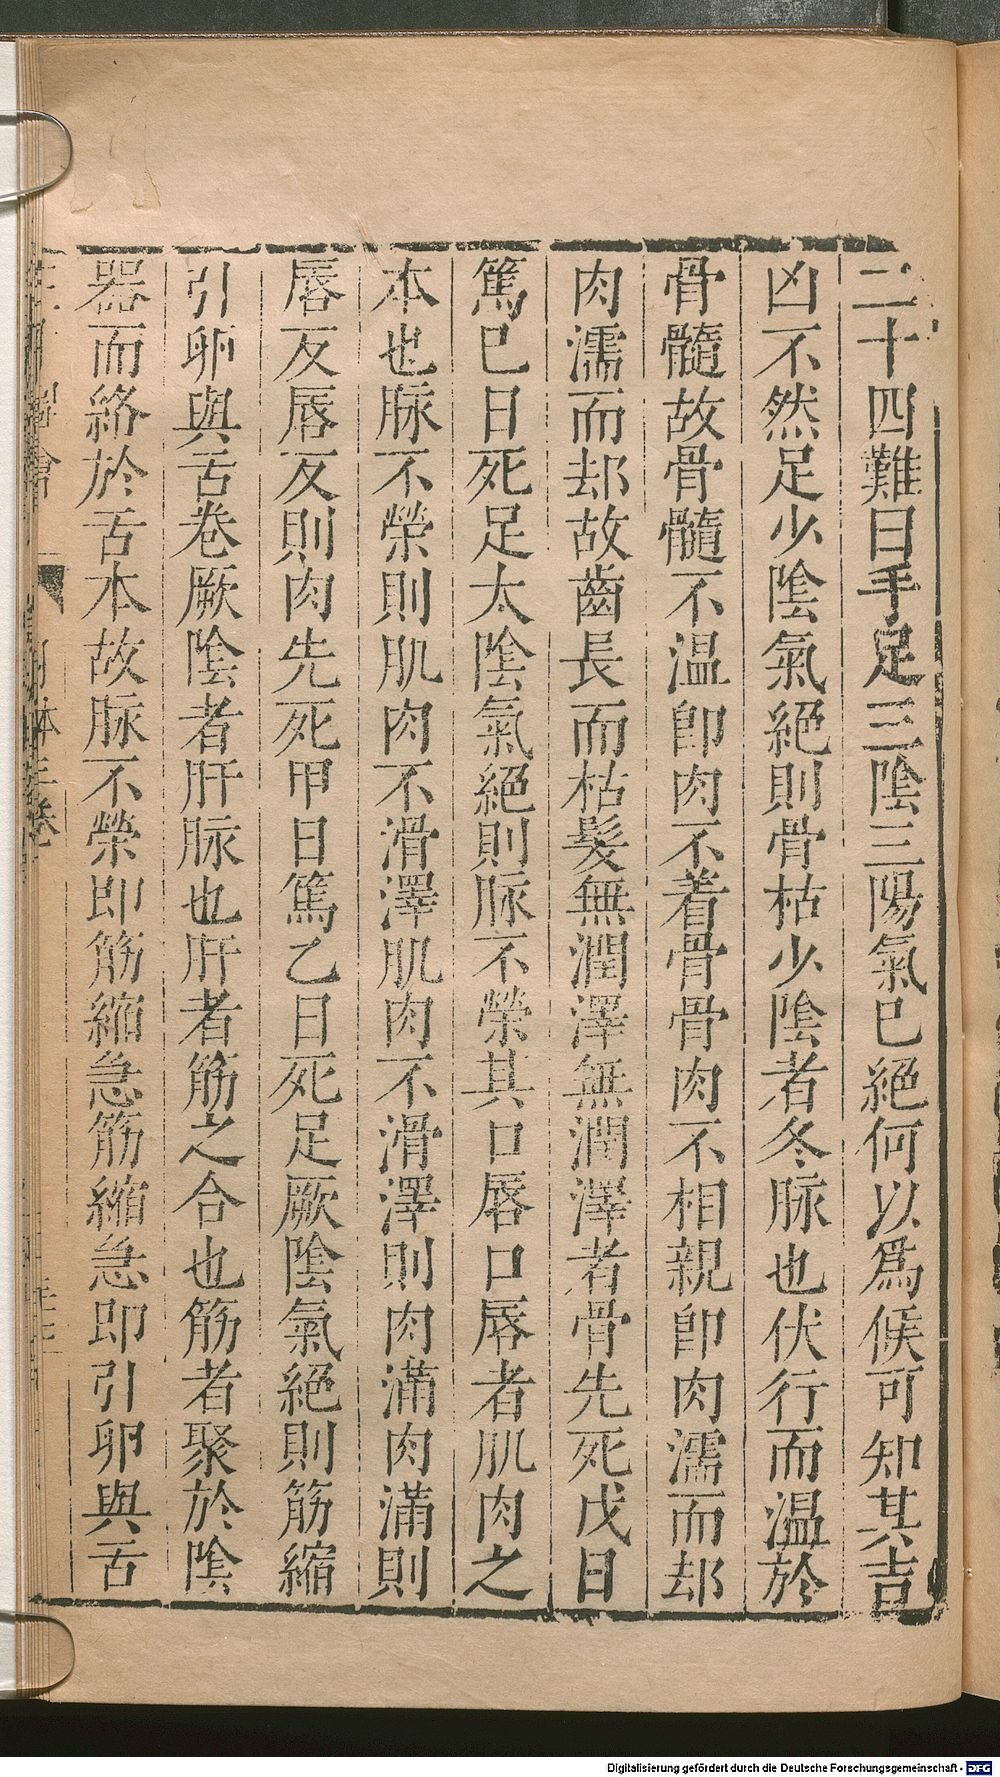 二十四難曰手足三陰三陽氣已絕何以爲候可知其吉
凶不然足少陰氣絕則骨枯少陰者冬脉也伏行而溫於
骨髓故骨髓不溫卽肉不着骨骨肉不相親卽肉濡而却
肉濡而却故齒長而枯髮無潤澤無潤澤者骨先死戊日
篤巳日死足太陰氣絕則脉不榮其口唇口唇者肌肉之
本也脉不榮則肌肉不滑澤肌肉不滑澤則肉滿肉滿則
唇反唇反則肉先死甲日篤乙日死足厥陰氣絕則筋縮
引卵與舌卷厥陰者肝脉也肝者筋之合也筋者聚於陰
器而絡於舌本故脉不榮即筋縮急筋縮急即引卵與舌
Digitalisierung gefördert durch die Deutsche Forschungsgemeinschaft - DFG